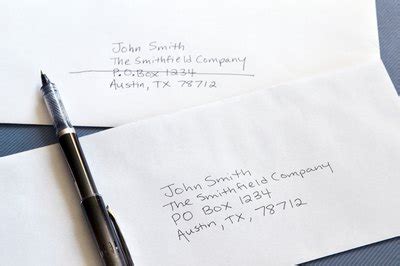 John Smith
The Smithfield Company
P.O. Box 1234
Austin, TX 78712
John Smith
The Smithfield Company
PO Box 1234
Austin, TX, 78712